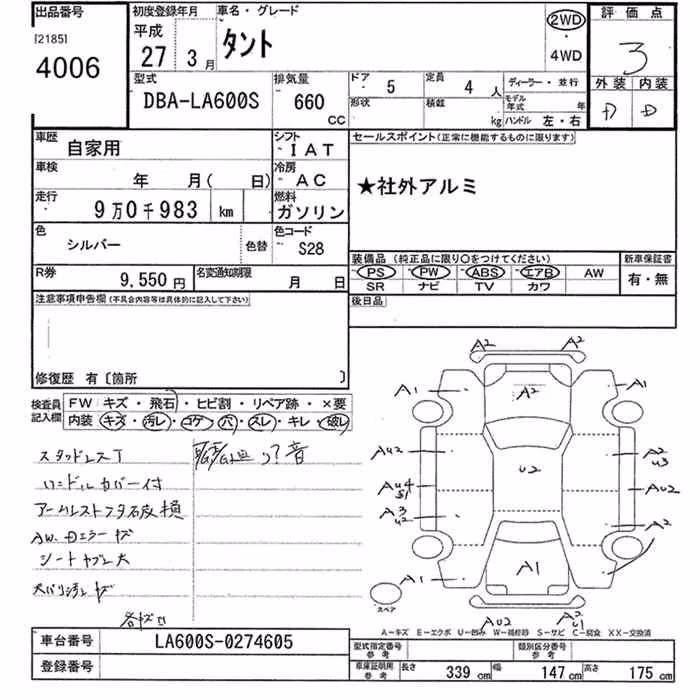 出品番号 初度登録年月 車名・グレード 評価点
[2185] 平成 タント 2WD
4006 27 3月 4WD 3
型式 排気量 ドア 5 定員 4人 ディーラー・並行 外装 内装
DBA-LA600S 660 cc 形状 積載 kg モデル年式 年 ハンドル 左・右 D D
車歴 自家用 シフト IAT セールスポイント(正常に機能するものに限ります)
車検 年 月( 日) 冷房 AC ★社外アルミ
走行 9万0千983 km 燃料 ガソリン
色 シルバー 色替 色コード S28 装備品(純正品に限り○をつけてください) 新車保証書
PS PW ABS エアB AW 有・無
R券 9,550円 名変通知期限 月 日 SR ナビ TV カワ
注意事項申告欄(不具合内容等は具体的に記入して下さい) 後日品
修復歴 有〔箇所 〕
検査員記入欄 FW キズ・飛石・ヒビ割・リペア跡・×要
内装 キズ・汚レ・コゲ・穴・スレ・キレ・破レ
スタッドレスT
ハンドルカバー付
アームレストフタ破損
シートヤブレ大
A2 A2
A1 A2 A1
AU2 U2 A2 U3
AU4 S1 AU2
A3 U2 A2
A1 A1
スペア
AU2 A2 U1
A−キズ E−エクボ U−凹み W−補修跡 S−サビ C−腐食 XX−交換済
車台番号 LA600S-0274605 型式指定番号 参考 類別区分番号 参考
登録番号 車庫証明用 参考 長さ 339 cm 幅 147 cm 高さ 175 cm